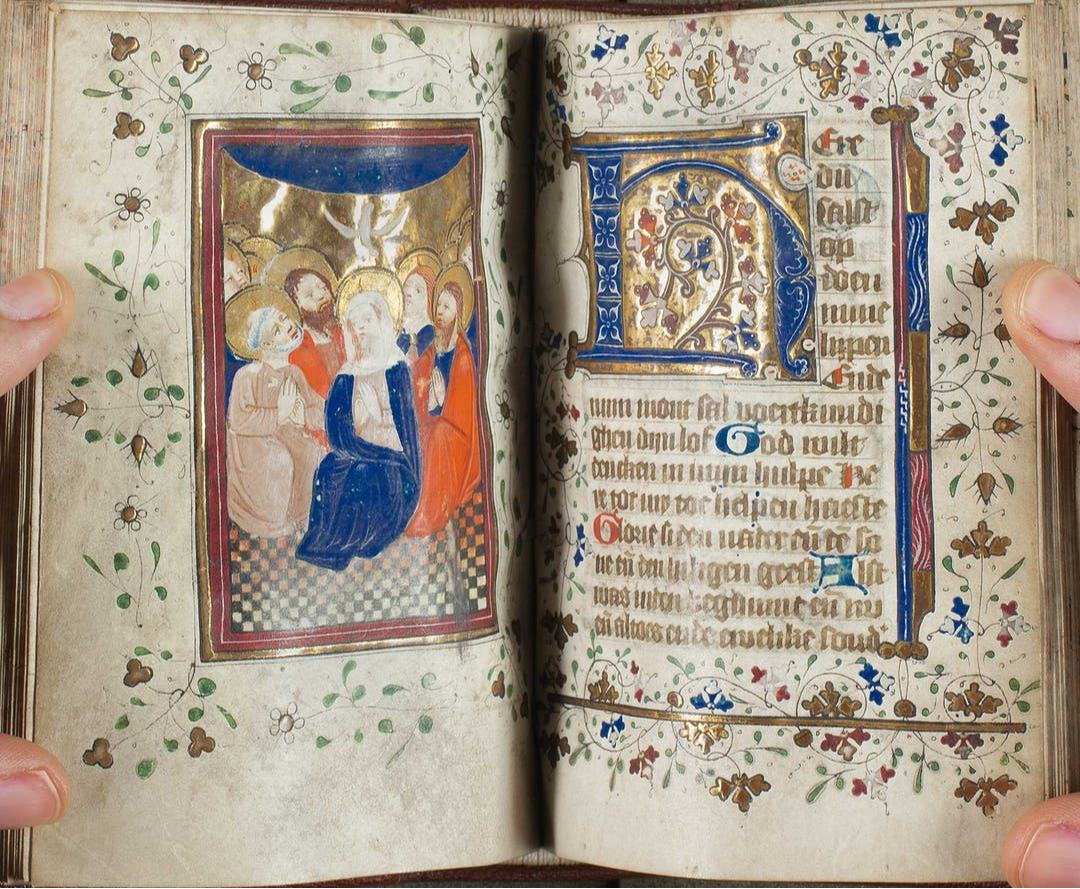 HEre
du
salst
op
doen
mine
lippen
Ende
mijn mont sal voertkundi
ghen dijn lof God wilt
dencken in mijn hulpe He
re tot my tot helpen haeste
Glorie si den vader eñ dē so
ne eñ den heiligen geest Alst
was inden beghinne eñ nu
eñ altoes ende ewelike sond